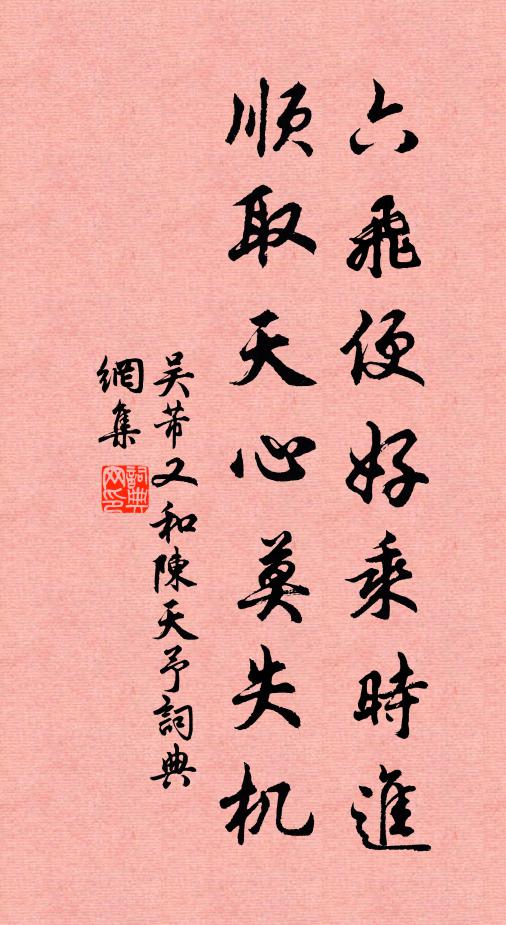 六飛便好乘時進
順取天心莫失机
吴芾又和陳天予詞典
網集
詞典
网印